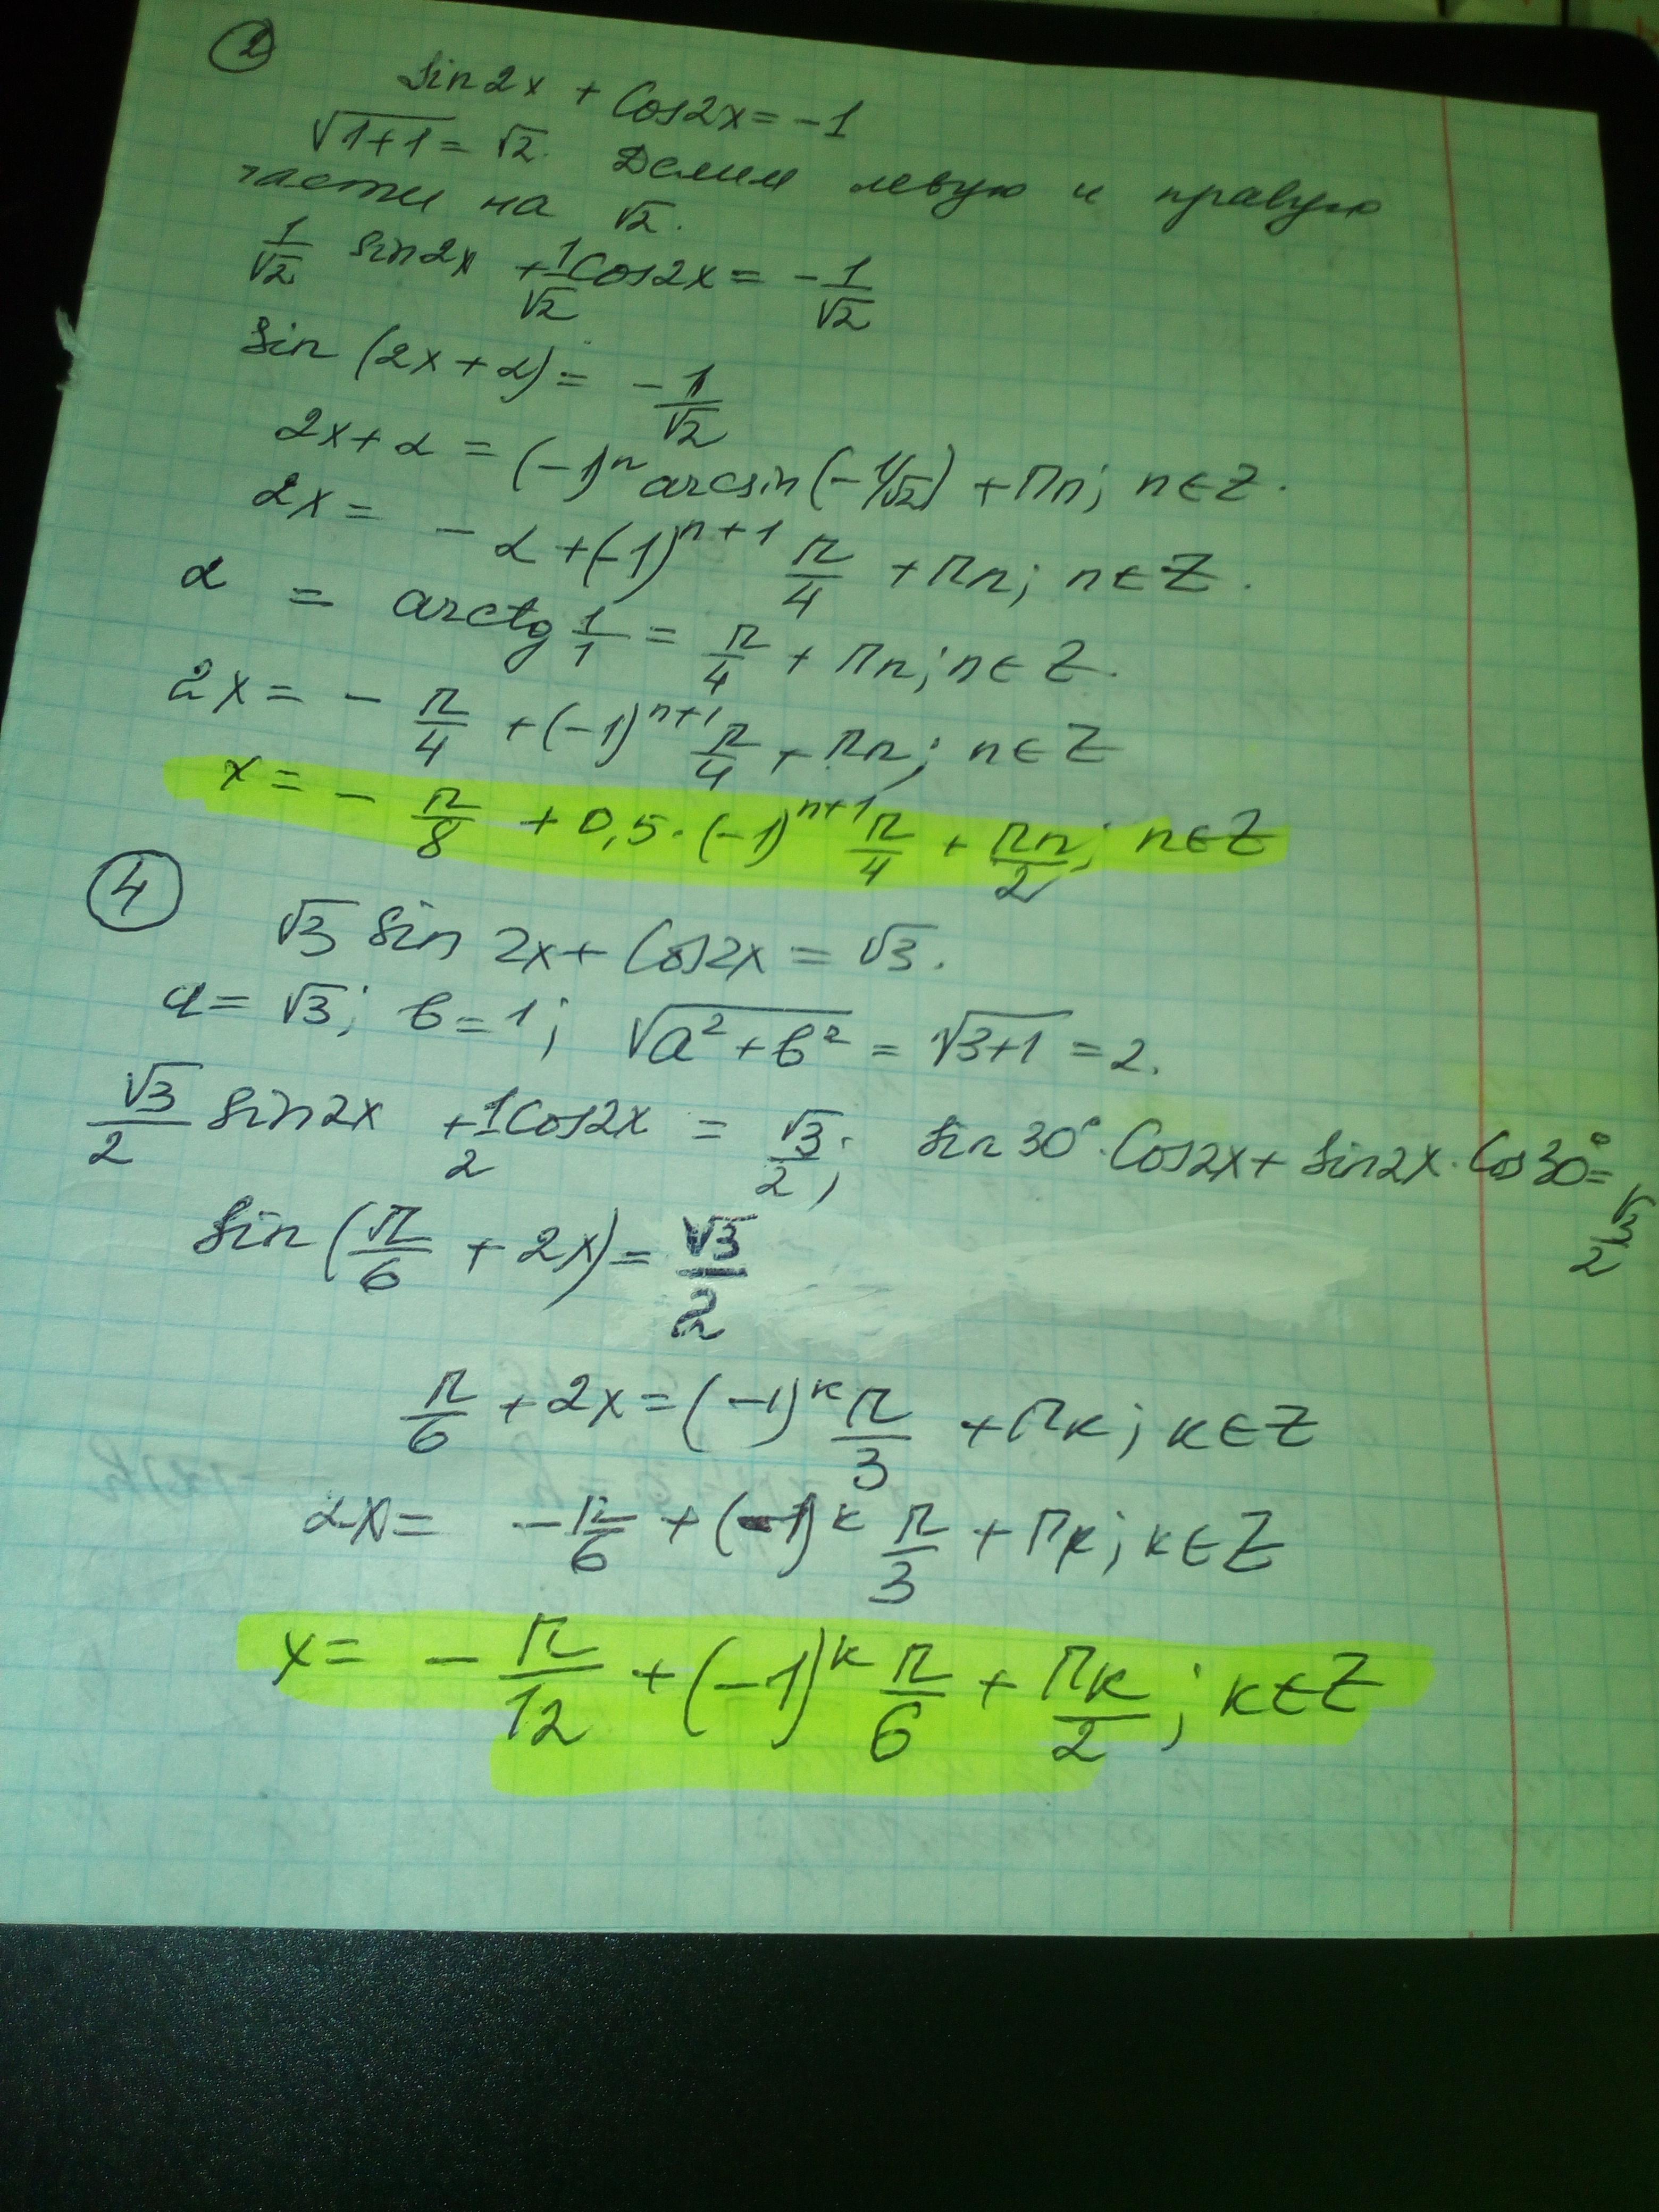 ②
sin2x + Cos2x = -1
√(1+1) = √2. Делим левую и правую
части на √2.
1/√2 sin2x + 1/√2 Cos2x = - 1/√2
sin (2x + α) = - 1/√2
2x + α = (-1)ⁿ arcsin(-1/√2) + πn; n∈Z.
2x = - α + (-1)ⁿ⁺¹ π/4 + πn; n∈Z.
α = arctg 1/1 = π/4 + πn; n∈Z.
2x = - π/4 + (-1)ⁿ⁺¹ π/4 + πn; n∈Z
x = - π/8 + 0,5·(-1)ⁿ⁺¹ π/4 + πn/2; n∈Z
④
√3 sin 2x + Cos2x = √3.
a = √3; b = 1; √(a² + b²) = √(3+1) = 2.
√3/2 sin2x + 1/2 Cos2x = √3/2; sin30°·Cos2x + sin2x·Cos30° = √3/2
sin (π/6 + 2x) = √3/2
π/6 + 2x = (-1)ᵏ π/3 + πk; k∈Z
2x = - π/6 + (-1)ᵏ π/3 + πk; k∈Z
x = - π/12 + (-1)ᵏ π/6 + πk/2; k∈Z